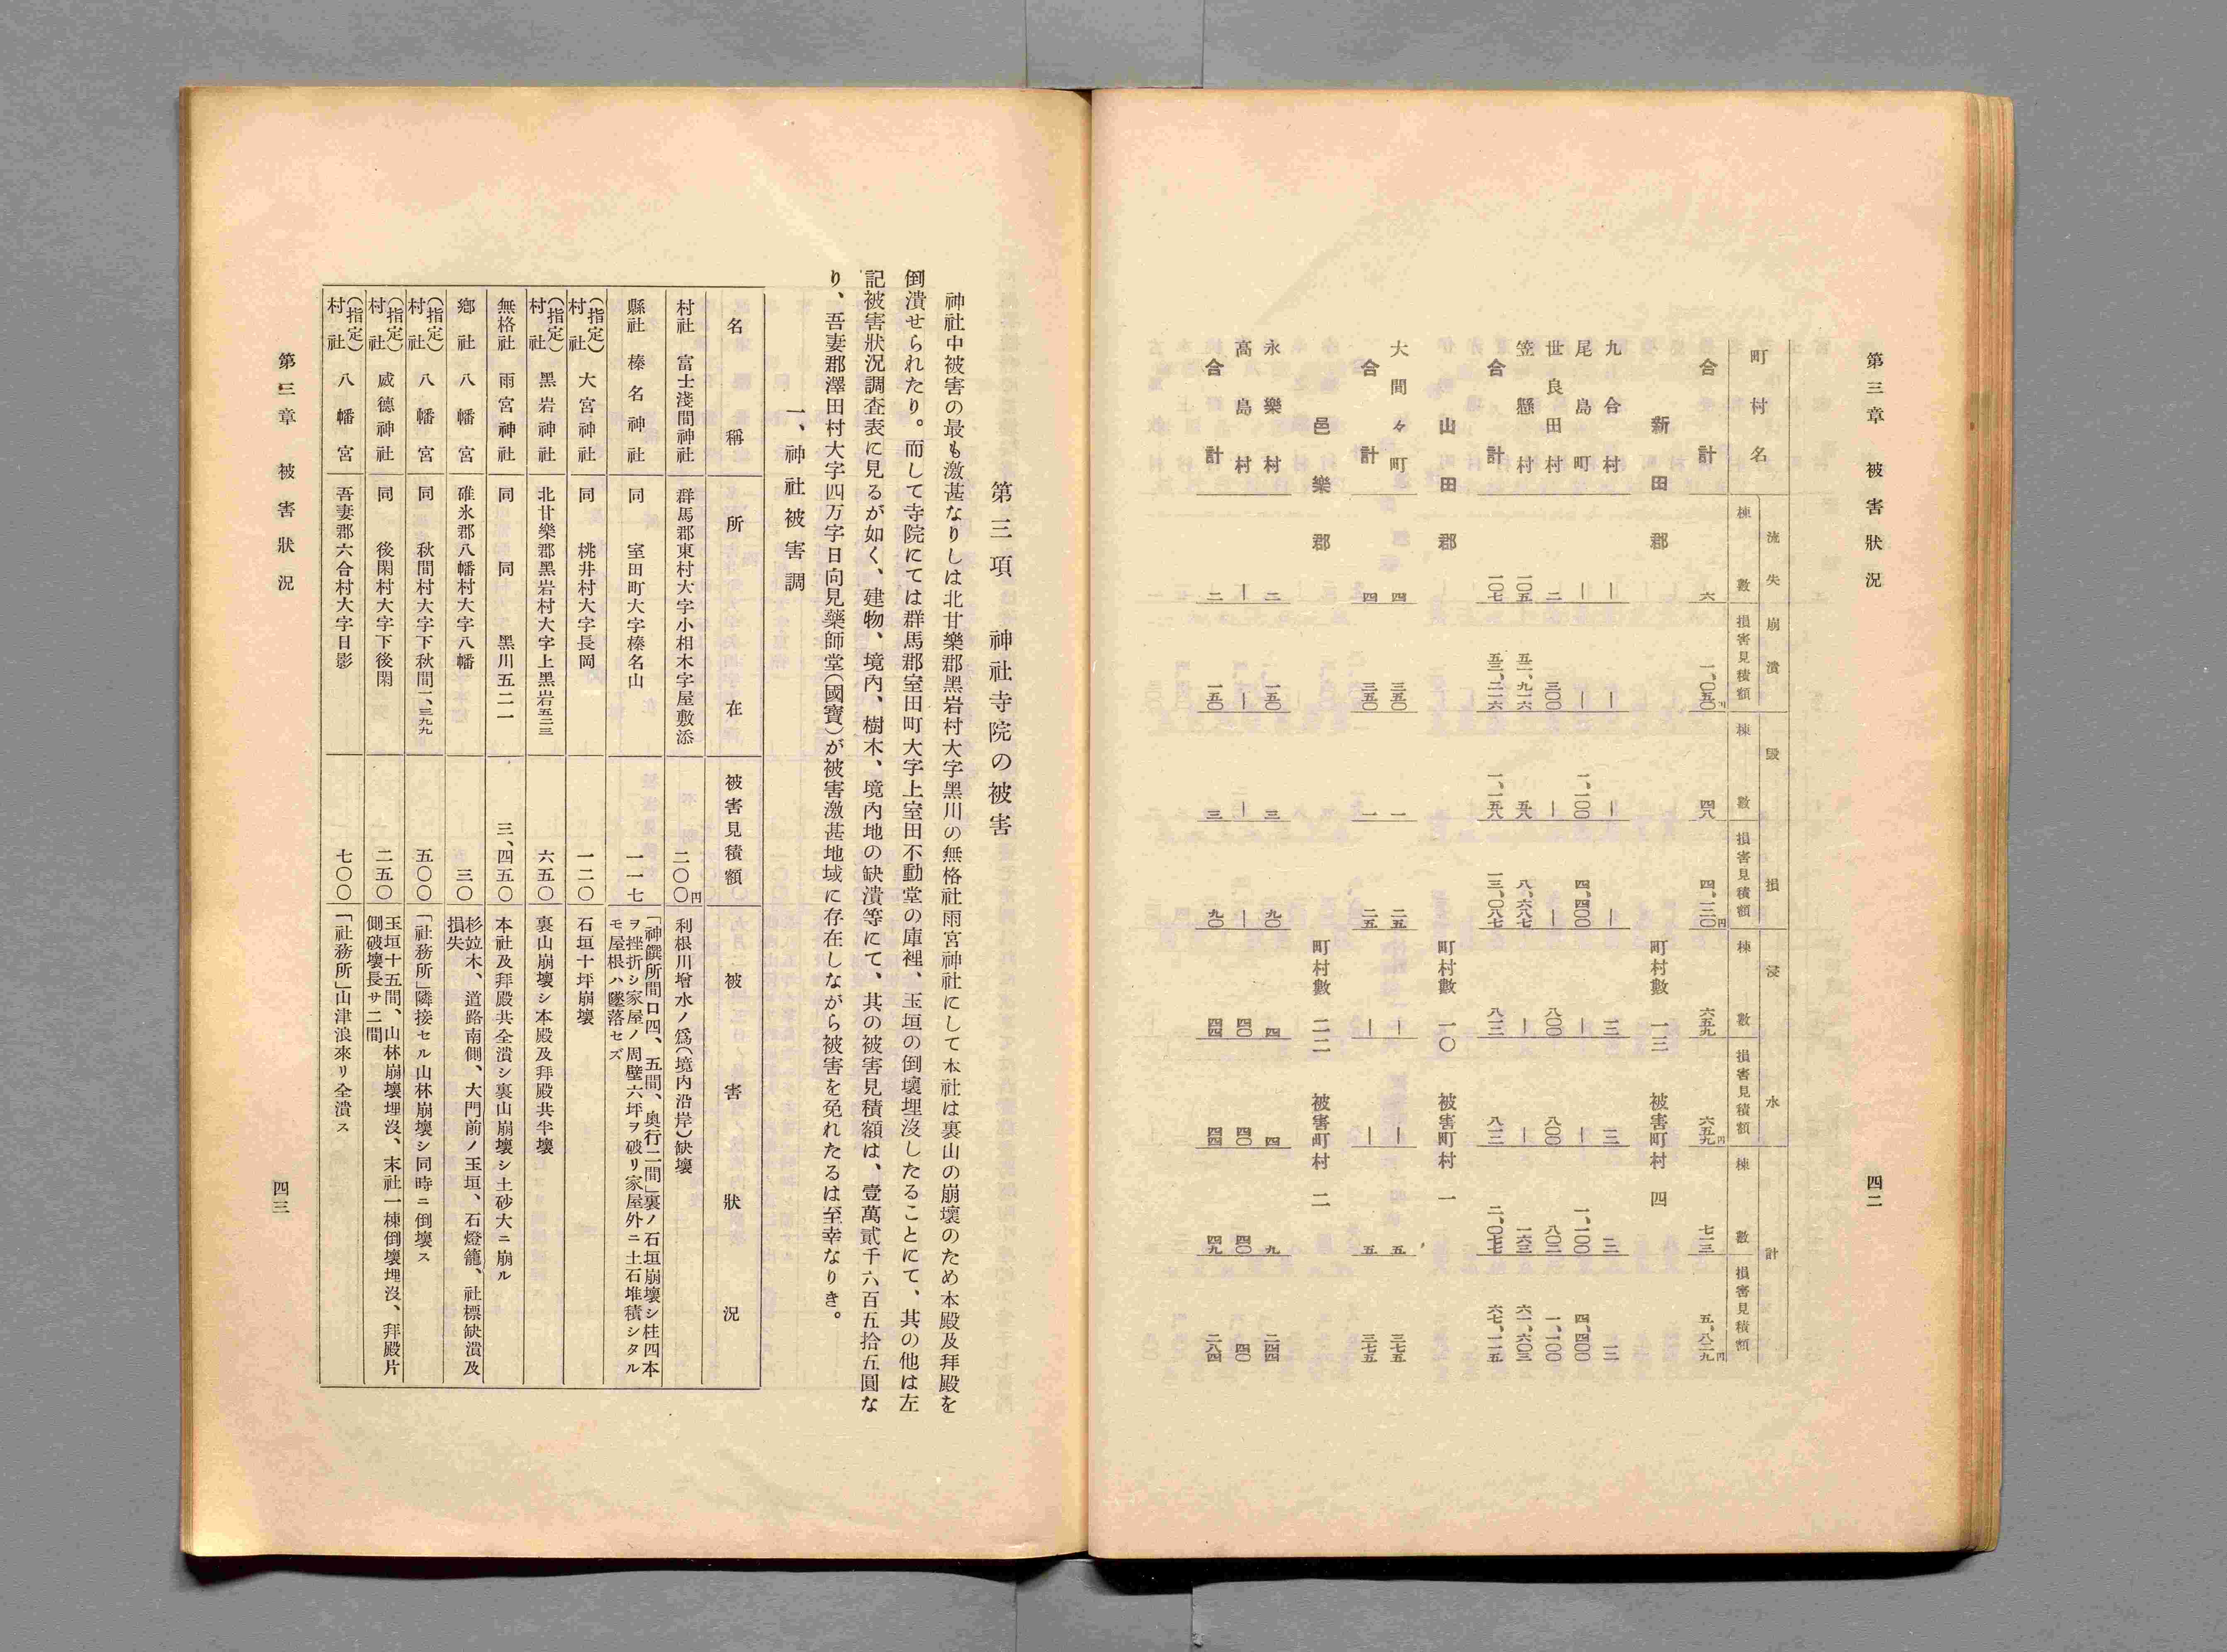 第三章　被害狀況
四二
町村名　流失崩潰　毀損　浸水　計
棟數　損害見積額　棟數　損害見積額　棟數　損害見積額　棟數　損害見積額
合計　六　一、〇五〇円　四八　四、一二〇円　六五九　六五九円　七一三　五、八二九円
新田郡　町村數　一三　被害町村　四
九合村　―　―　―　―　三　三　三　三
尾島町　―　―　一、一〇〇　四、四〇〇　―　―　一、一〇〇　四、四〇〇
世良田村　二　三〇〇　―　―　八〇〇　八〇〇　八〇二　一、一〇〇
笠懸村　一〇五　五二、九一六　五八　八、六八七　―　―　一六三　六一、六〇三
合計　一〇七　五三、二一六　一、一五八　一三、〇八七　八〇三　八〇三　二、〇六八　六七、一一五
山田郡　町村數　一〇　被害町村　一
大間々町　四　三五〇　一　二五　―　―　五　三七五
合計　四　三五〇　一　二五　―　―　五　三七五
邑樂郡　町村數　二二　被害町村　二
永樂村　二　一五〇　三　九〇　四　四　九　二四四
高島村　―　―　―　―　四〇　四〇　四〇　四〇
合計　二　一五〇　三　九〇　四四　四四　四九　二八四
第三項　神社寺院の被害
神社中被害の最も激甚なりしは北甘樂郡黑岩村大字黑川の無格社雨宮神社にして本社は裏山の崩壞のため本殿及拜殿を
倒潰せられたり。而して寺院にては群馬郡室田町大字上室田不動堂の庫裡、玉垣の倒壞埋沒したることにて、其の他は左
記被害狀況調査表に見るが如く、建物、境內、樹木、境內地の缺潰等にて、其の被害見積額は、壹萬貳千六百五拾五圓な
り、吾妻郡澤田村大字四万字日向見藥師堂（國寶）が被害激甚地域に存在しながら被害を免れたるは至幸なりき。
一、神社被害調
名稱　所在　被害見積額　被害狀況
村社　富士淺間神社　群馬郡東村大字小相木字屋敷添　二〇〇円　利根川增水ノ爲（境內沿岸）缺壞
縣社　榛名神社　同　室田町大字榛名山　一一七　「神饌所間口四、五間、奧行二間」裏ノ石垣崩壞シ柱四本
ヲ挫折シ家屋ノ周壁六坪ヲ破リ家屋外ニ土石堆積シタル
モ屋根ハ墜落セズ
（指定）村社　大宮神社　同　桃井村大字長岡　一二〇　石垣十坪崩壞
（指定）村社　黑岩神社　北甘樂郡黑岩村大字上黑岩五二三　六五〇　裏山崩壞シ本殿及拜殿共半壞
無格社　雨宮神社　同　同　黑川五二一　三、四五〇　本社及拜殿共全潰シ裏山崩壞シ土砂大ニ崩ル
鄕社　八幡宮　碓氷郡八幡村大字八幡　三〇　杉竝木、道路南側、大門前ノ玉垣、石燈籠、社標缺潰及
損失
（指定）村社　八幡宮　同　秋間村大字下秋間一、三九九　五〇〇　「社務所」隣接セル山林崩壞シ同時ニ倒壞ス
（指定）村社　威德神社　同　後閑村大字下後閑　二五〇　玉垣十五間、山林崩壞埋沒、末社一棟倒壞埋沒、拜殿片
側破壞長サ二間
（指定）村社　八幡宮　吾妻郡六合村大字日影　七〇〇　「社務所」山津浪來リ全潰ス
第三章　被害狀況
四三